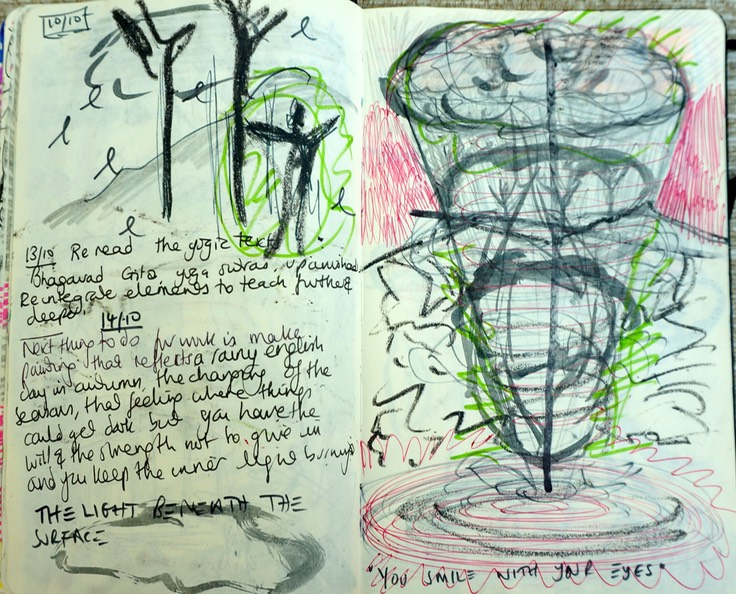 10/10
13/10 Re read the yogic text
Bhagavad Gita yoga sutras, Upanishad
Re integrate elements to teach further &
deeper
14/10
Next thing to do for work is make
painting that reflects a rainy english
day in autumn, the changing of the
seasons, that feeling where things
could get dark but you have the
will & the strength not to give in
and you keep the inner light burning
THE LIGHT BENEATH THE
SURFACE
"YOU SMILE WITH YOUR EYES"